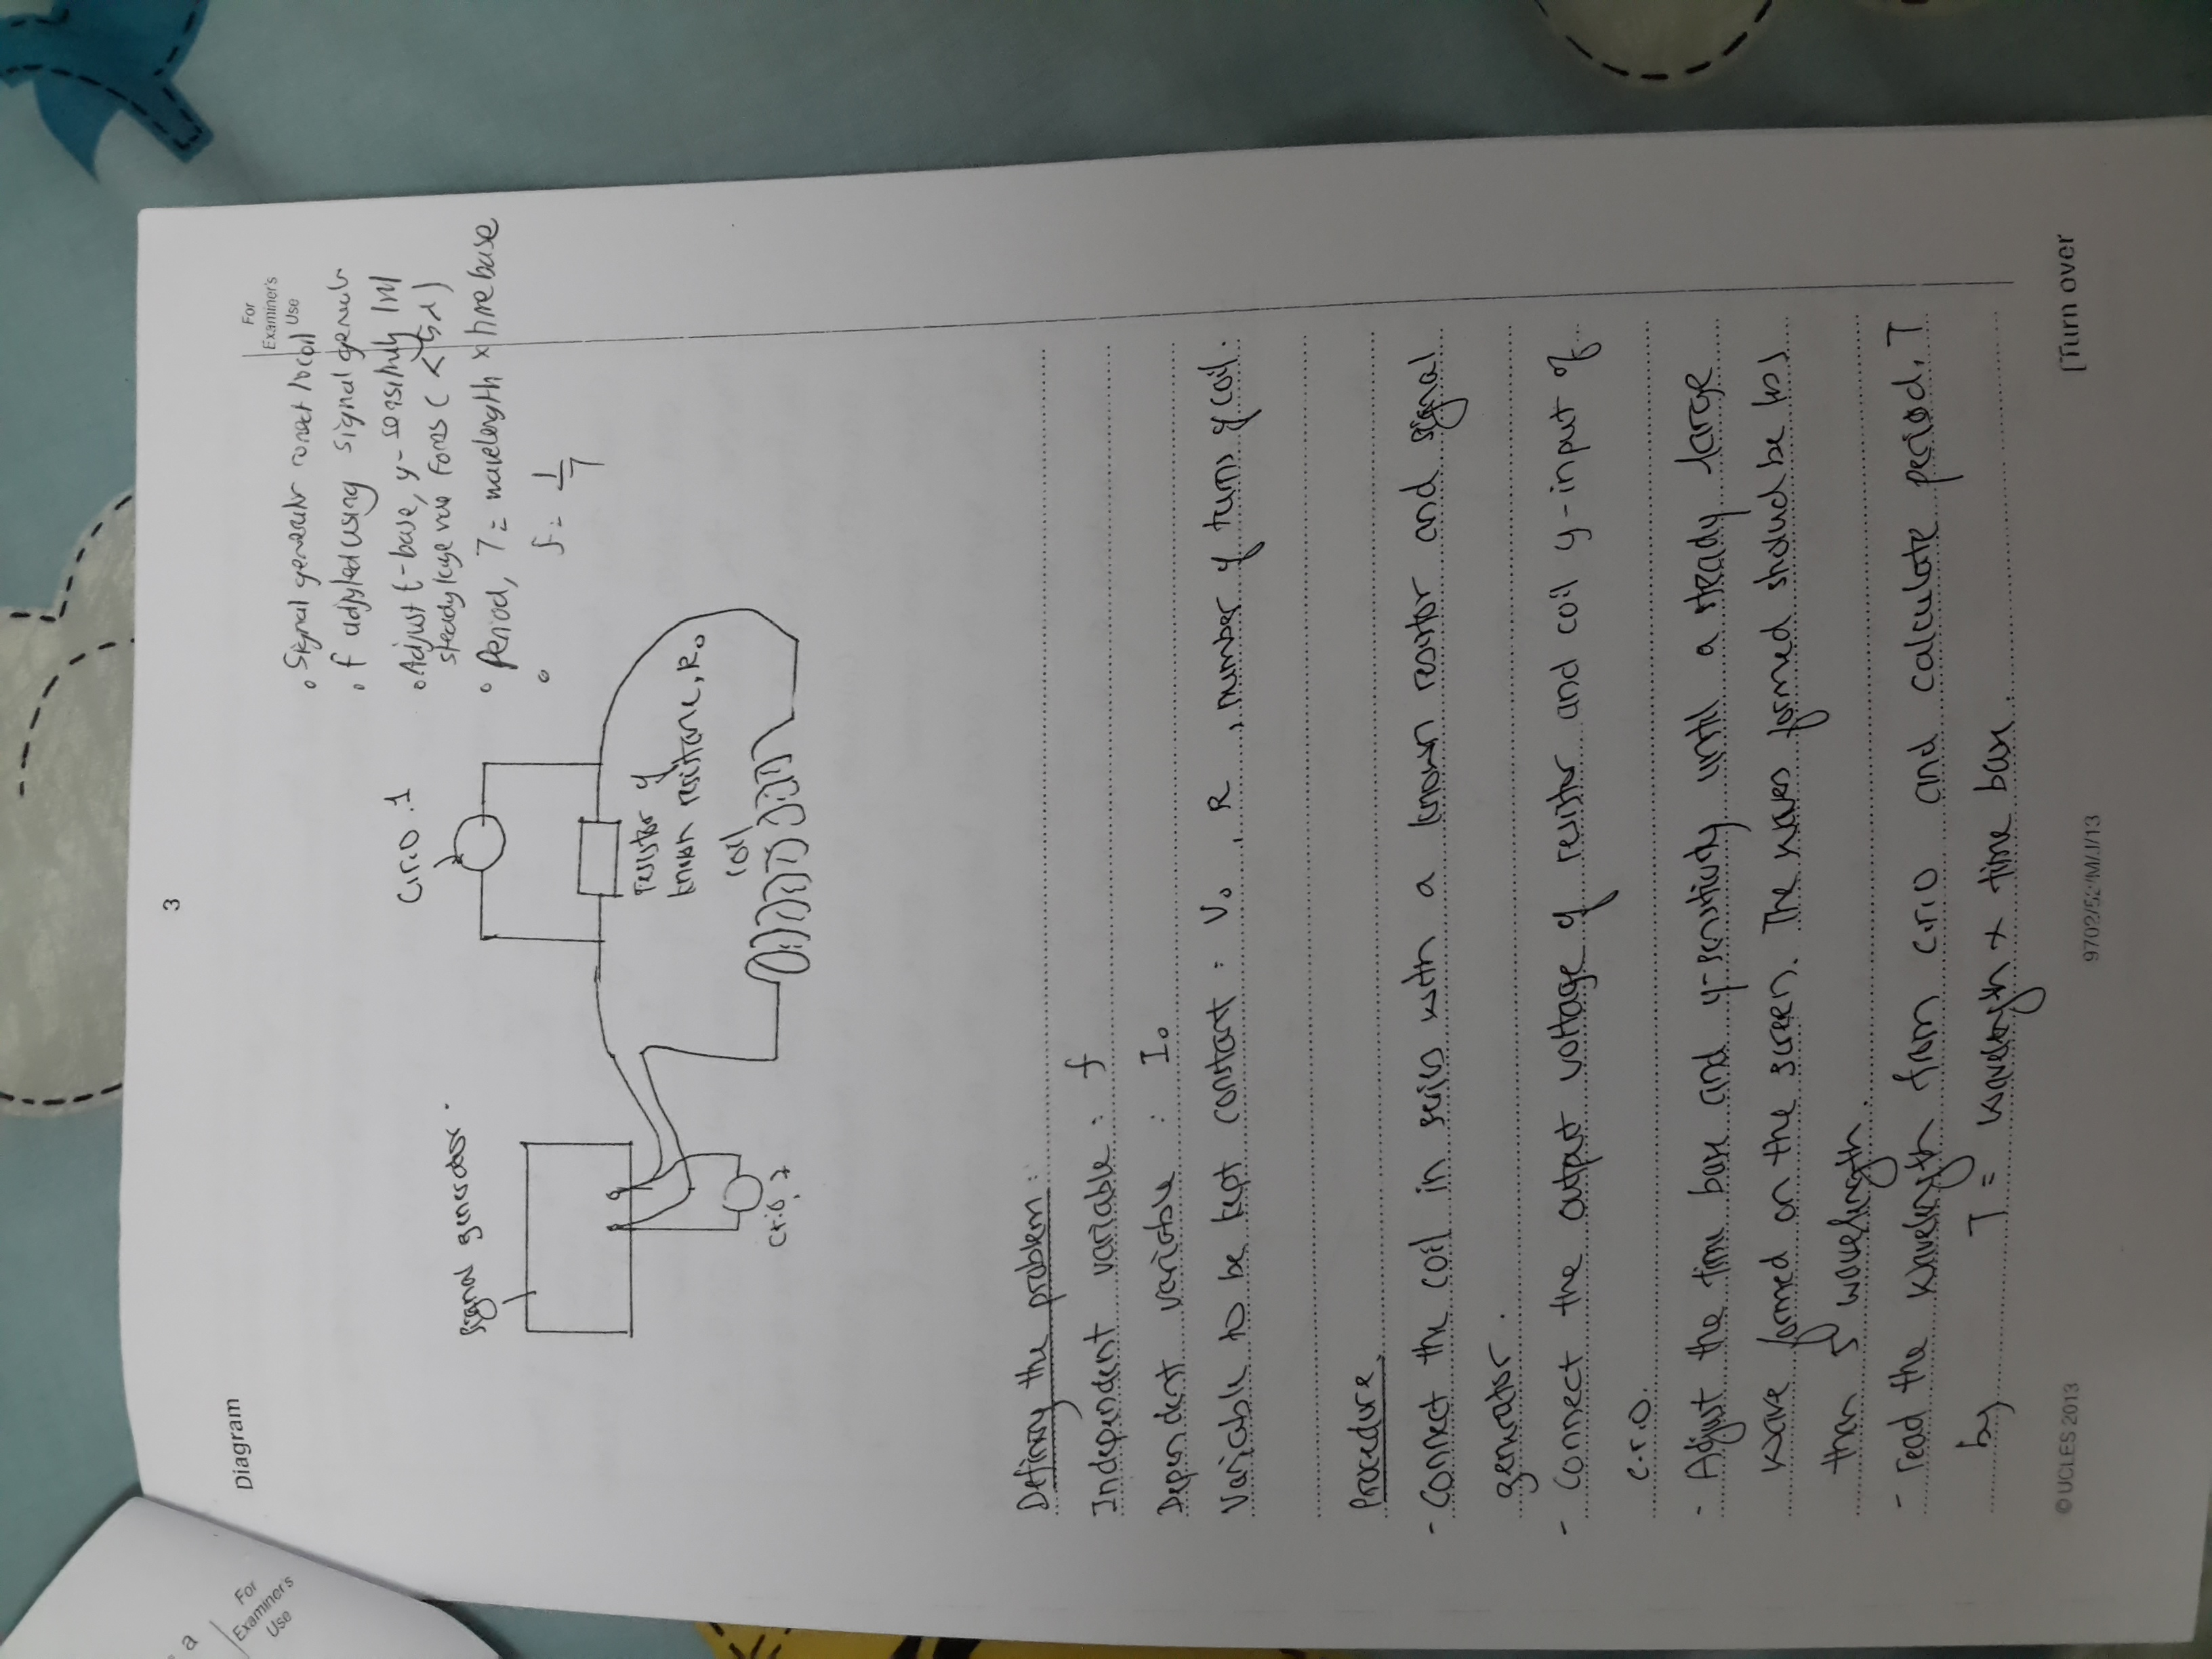 a
For
Examiner's
Use
3
Diagram
For
Examiner's
Use
Signal generator conect to coil
f adjusted using signal
Adjust t-base, y-sensitivity
steady large wave forms ( < 5λ )
Period, T = wavelength × time base
f = 1/T
signal generator
c.r.o. 1
resistor of
known resistance, R₀
coil
c.r.o. 2
Defining the problem :
Independent variable : f
Dependent variable : I₀
Variable to be kept constant : V₀ , R , number of turns of coil.
Procedure.
- Connect the coil in series with a known resistor and signal
generator.
- Connect the output voltage of resistor and coil y-input of
c.r.o.
- Adjust the time base and y-sensitivity until a steady large
wave formed on the screen. The waves formed should be less
than 5 wavelength.
- read the wavelength from c.r.o and calculate period, T
by T = wavelength × time base.
© UCLES 2013
9702/52/M/J/13
[Turn over